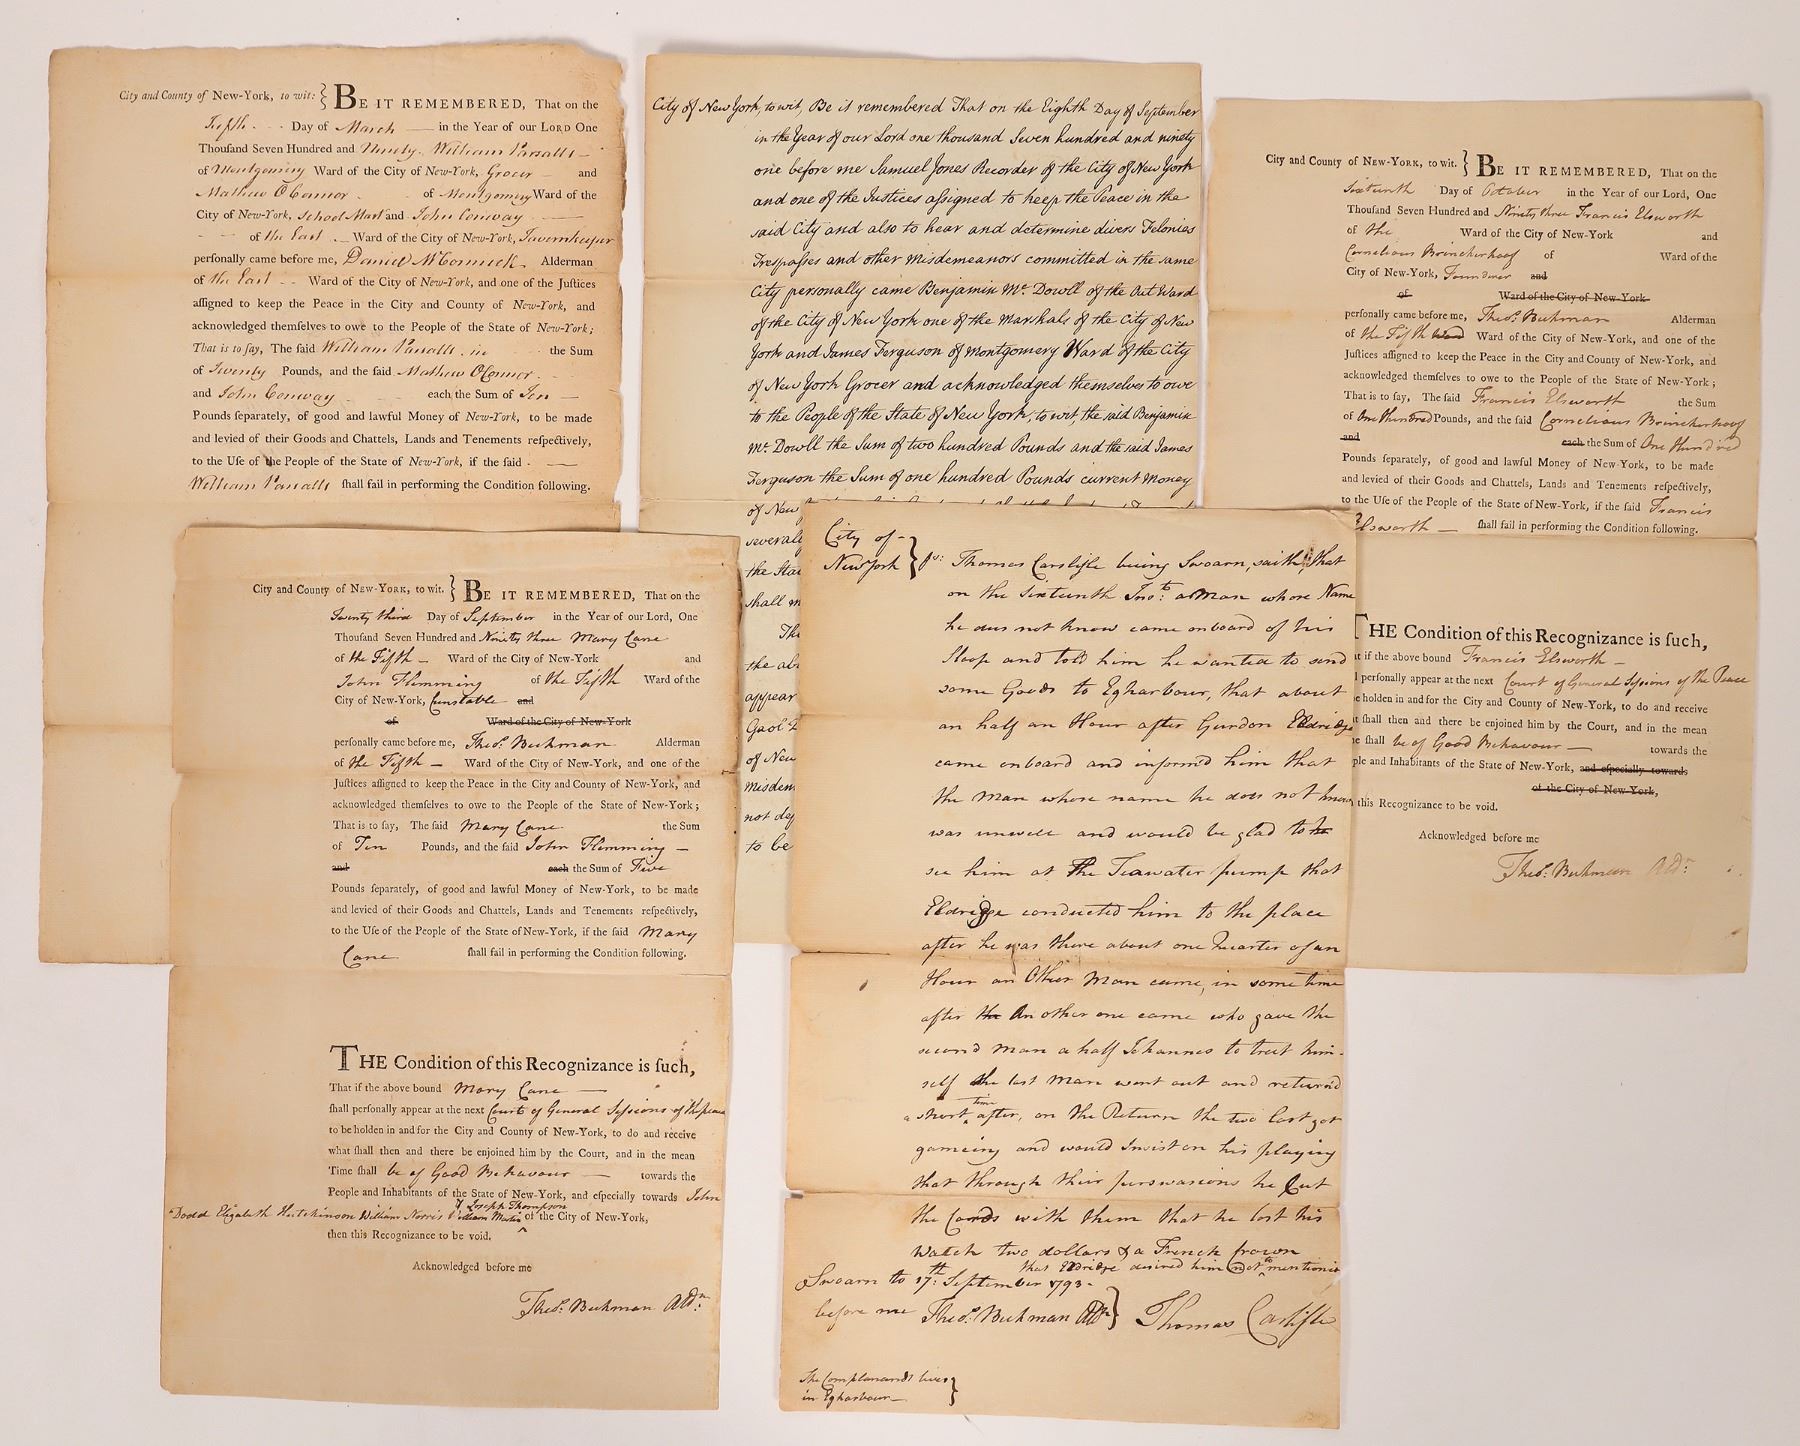 City and County of New-York, to wit: } BE IT REMEMBERED, That on the
Fifth Day of March in the Year of our LORD One
Thousand Seven Hundred and Ninety. William Parsalls
of Montgomery Ward of the City of New-York, Grocer and
Mathew O Connor of Montgomery Ward of the
City of New-York, School Mast and John Conway
of the East Ward of the City of New-York, Tavernkeeper
personally came before me, Daniel McCormick Alderman
of the East Ward of the City of New-York, and one of the Justices
assigned to keep the Peace in the City and County of New-York, and
acknowledged themselves to owe to the People of the State of New-York;
That is to say, The said William Parsalls in the Sum
of Twenty Pounds, and the said Mathew O Connor
and John Conway each the Sum of Ten
Pounds separately, of good and lawful Money of New-York, to be made
and levied of their Goods and Chattels, Lands and Tenements respectively,
to the Use of the People of the State of New-York, if the said
William Parsalls shall fail in performing the Condition following.
City of New York, to wit, Be it remembered That on the Eighth Day of September
in the Year of our Lord one thousand Seven hundred and ninety
one before me Samuel Jones Recorder of the City of New York
and one of the Justices assigned to keep the Peace in the
said City and also to hear and determine divers Felonies
Trespasses and other Misdemeanors committed in the same
City personally came Benjamin Mc Dowll of the Out Ward
of the City of New York one of the Marshals of the City of New
York and James Ferguson of Montgomery Ward of the City
of New York Grocer and acknowledged themselves to owe
to the People of the State of New York, to wit, the said Benjamin
Mc Dowll the Sum of two hundred Pounds and the said James
Ferguson the Sum of one hundred Pounds current Money
of New
several
the Sta
shall m
The
the ab
appear
Gaol D
of New
misdem
not dep
to be
City and County of New-York, to wit. } BE IT REMEMBERED, That on the
Sixteenth Day of October in the Year of our Lord, One
Thousand Seven Hundred and Ninety three Francis Elsworth
of the Ward of the City of New-York and
Cornelious Brinckerhoof of Ward of the
City of New-York, Founderer and
of Ward of the City of New-York
personally came before me, Theos. Beekman Alderman
of the Fifth Ward Ward of the City of New-York, and one of the
Justices assigned to keep the Peace in the City and County of New-York, and
acknowledged themselves to owe to the People of the State of New-York;
That is to say, The said Francis Elsworth the Sum
of One Hundred Pounds, and the said Cornelious Brinckerhoof
and each the Sum of One Hundred
Pounds separately, of good and lawful Money of New-York, to be made
and levied of their Goods and Chattels, Lands and Tenements respectively,
to the Use of the People of the State of New-York, if the said Francis
Elsworth shall fail in performing the Condition following.
THE Condition of this Recognizance is such,
t if the above bound Francis Elsworth
l personally appear at the next Court of General Sessions of the Peace
e holden in and for the City and County of New-York, to do and receive
t shall then and there be enjoined him by the Court, and in the mean
e shall be of Good Behavour towards the
ple and Inhabitants of the State of New-York, and especially towards
of the City of New-York,
this Recognizance to be void.
Acknowledged before me
Theos. Beekman Aldn:
City and County of New-York, to wit. } BE IT REMEMBERED, That on the
Twenty third Day of September in the Year of our Lord, One
Thousand Seven Hundred and Ninety three Mary Cane
of the Fifth Ward of the City of New-York and
John Flemming of the Fifth Ward of the
City of New-York, Cunstable and
of Ward of the City of New-York
personally came before me, Theos. Beekman Alderman
of the Fifth Ward of the City of New-York, and one of the
Justices assigned to keep the Peace in the City and County of New-York, and
acknowledged themselves to owe to the People of the State of New-York;
That is to say, The said Mary Cane the Sum
of Ten Pounds, and the said John Flemming
and each the Sum of Five
Pounds separately, of good and lawful Money of New-York, to be made
and levied of their Goods and Chattels, Lands and Tenements respectively,
to the Use of the People of the State of New-York, if the said Mary
Cane shall fail in performing the Condition following.
THE Condition of this Recognizance is such,
That if the above bound Mary Cane
shall personally appear at the next Court of General Sessions of the peace
to be holden in and for the City and County of New-York, to do and receive
what shall then and there be enjoined him by the Court, and in the mean
Time shall be of Good Behavour towards the
People and Inhabitants of the State of New-York, and especially towards John
& Joseph Thompson
Dodd Elizabeth Hutchinson William Norris William Martin of the City of New-York,
then this Recognizance to be void.
Acknowledged before me
Theos. Beekman Aldn:
City of
New York } ss: Thomas Carslisle being Swoarn, saith, that
on the Sixteenth Inst: a Man whose Name
he does not know came onboard of his
Sloop and told him he wanted to send
some Goods to Egharbour, that about
an half an Hour after Gurdon Eldridge
came onboard and informd him that
the man whose name he does not know
was unwell and would be glad to he
see him at the Teawater pump that
Eldridge conducted him to the place
after he was there about one Quarter of an
Hour an Other Man came, in some time
after the Another one came who gave the
second man a half Johannes to treat him-
self the last man went out and returnd
a short time after, on the Return the two last got
gameing and would Insist on his playing
that through their perswasions he Cut
the Cards with them that he lost his
Watch two dollars & a French crown
that Eldridge desired him not to mention it
Swoarn to 17th: September 1793
before me Theos. Beekman Aldn } Thomas Carslisle
The Complanands lives
in Egharbour }